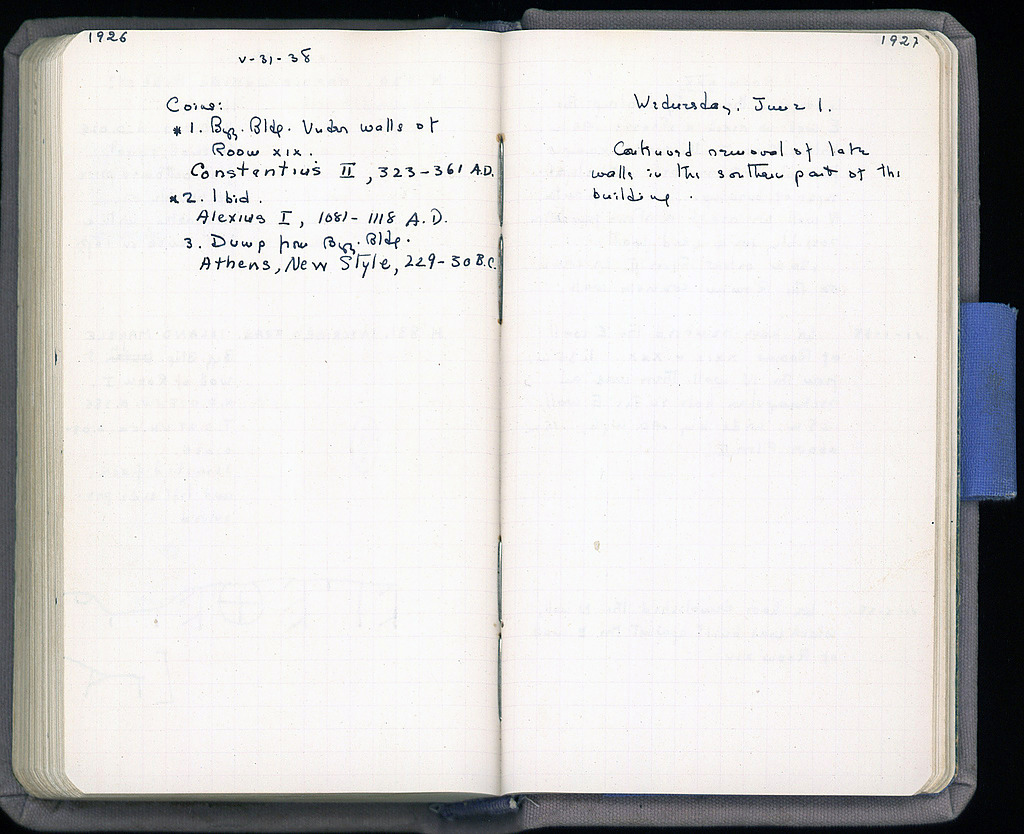 1926
V-31-38
Coins:
* 1. Byz. Bldg. Under walls of
Room XIX.
Constantius II, 323-361 A.D.
* 2. Ibid.
Alexius I, 1081-1118 A.D.
3. Dump from Byz. Bldg.
Athens, New Style, 229-30 B.C.
1927
Wednesday. June 1.
Continued removal of late
walls in the southern part of the
building.